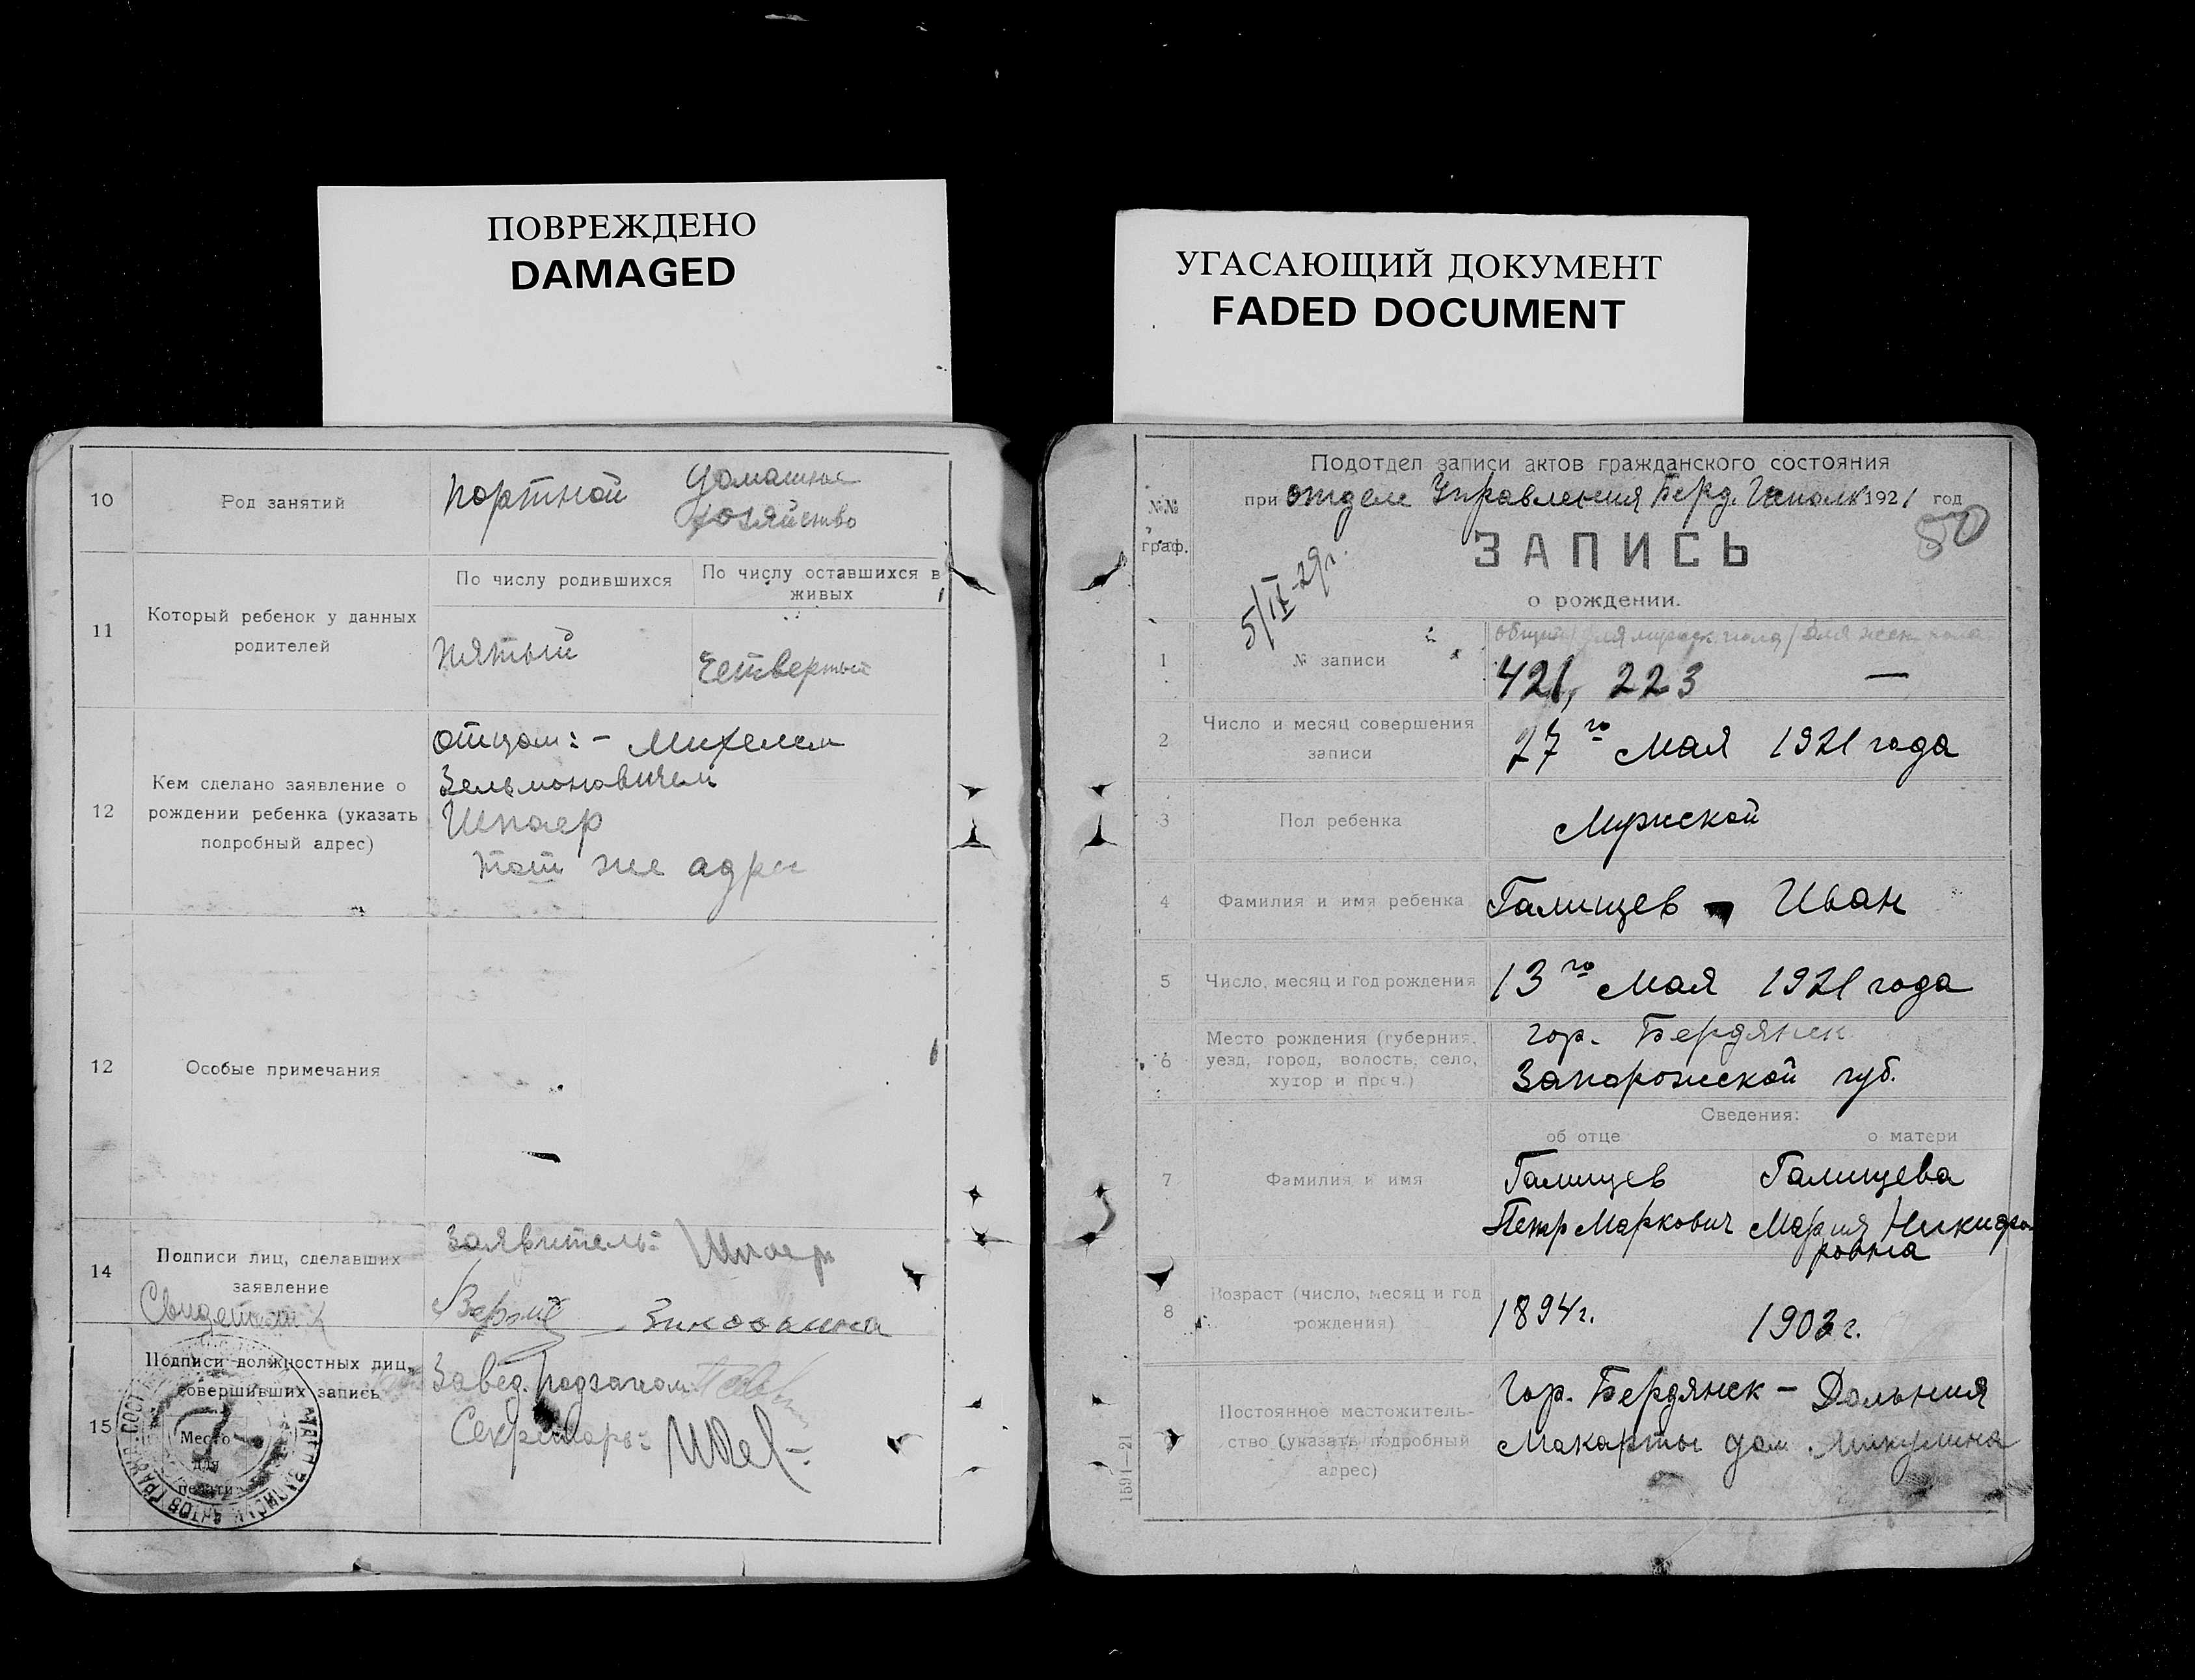 ПОВРЕЖДЕНО
DAMAGED
УГАСАЮЩИЙ ДОКУМЕНТ
FADED DOCUMENT
10
Род занятий
портной
домашнее
хозяйство
11
Который ребенок у данных
родителей
По числу родившихся
По числу оставшихся в
живых
пятый
четвертый
12
Кем сделано заявление о
рождении ребенка (указать
подробный адрес)
отцом: - Михелем
Зельмоновичем
Шпаер
тот же адрес
12
Особые примечания
14
Подписи лиц, сделавших
заявление
Заявитель: Шпаер
15
Подписи должностных лиц,
совершивших запись
Место
для
печати
Завед. подзагсом
Секретарь:
Подотдел записи актов гражданского состояния
при отделе Управления Берд. Исполк 1921 год
№№
граф.
50
ЗАПИСЬ
о рождении.
5/IX-29г.
1
№ записи
общий / для мужск. пола / для женск. пола
421, 223 —
2
Число и месяц совершения
записи
27го Мая 1921 года
3
Пол ребенка
Мужской
4
Фамилия и имя ребенка
Галищев - Иван
5
Число, месяц и год рождения
13го Мая 1921 года
6
Место рождения (губерния,
уезд, город, волость, село,
хутор и проч.)
гор. Бердянск
Запорожской губ.
Сведения:
об отце
о матери
7
Фамилия и имя
Галищев
Петр Маркович
Галищева
Мария Никифо
ровна
8
Возраст (число, месяц и год
рождения)
1894г.
1903г.
9
Постоянное местожитель-
ство (указать подробный
адрес)
Гор. Бердянск - Дальния
Макорты дом Микулина
1591—21